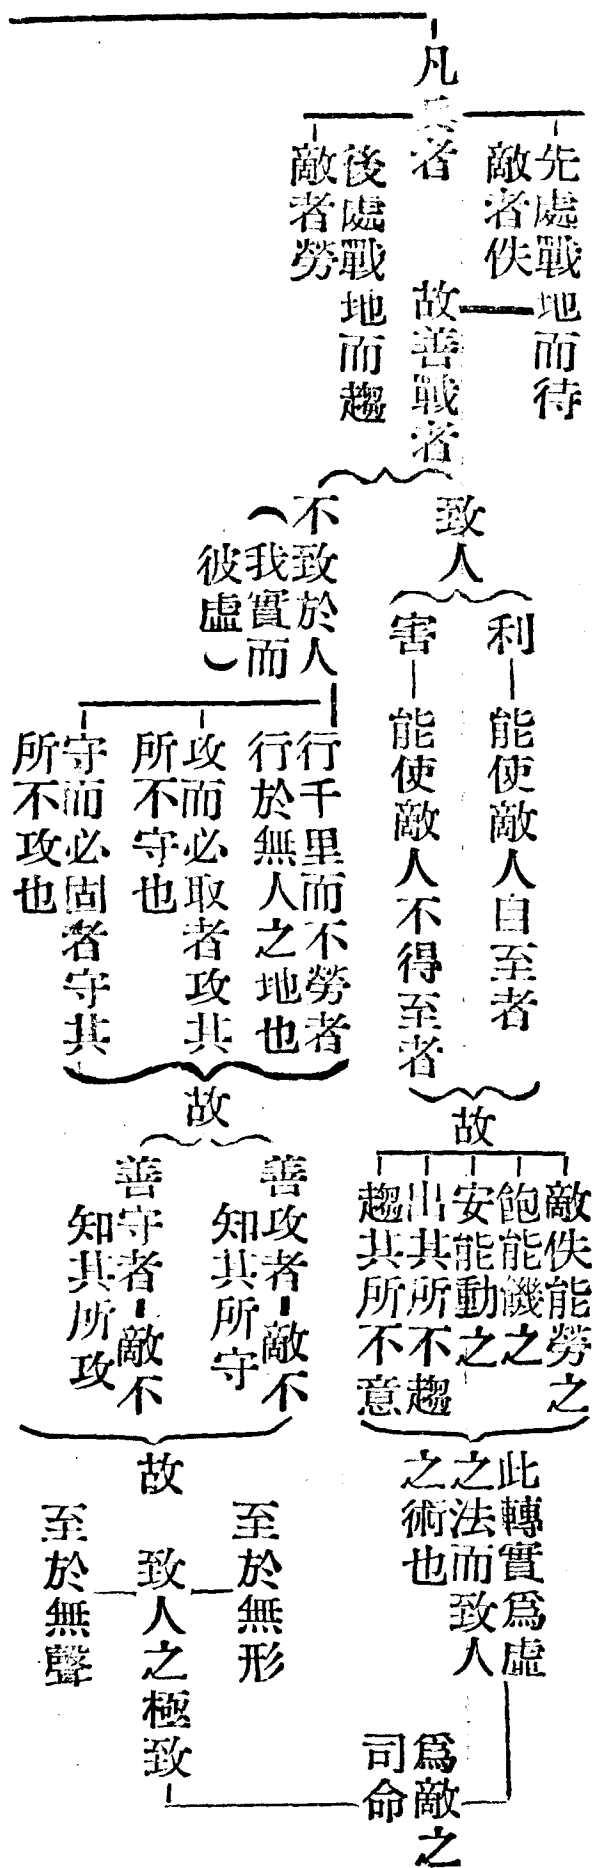 凡兵者
先處戰地而待
敵者佚
後處戰地而趨
敵者勞
故善戰者
致人
利
能使敵人自至者
害
能使敵人不得至者
故
敵佚能勞之
飽能饑之
安能動之
出其所不趨
趨其所不意
此轉實爲虛
之法而致人
之術也
不致於人
(我實而
彼虛)
行千里而不勞者
行於無人之地也
攻而必取者攻其
所不守也
守而必固者守其
所不攻也
故
善攻者-敵不
知其所守
善守者-敵不
知其所攻
故
至於無形
致人之極致
至於無聲
爲敵之
司命